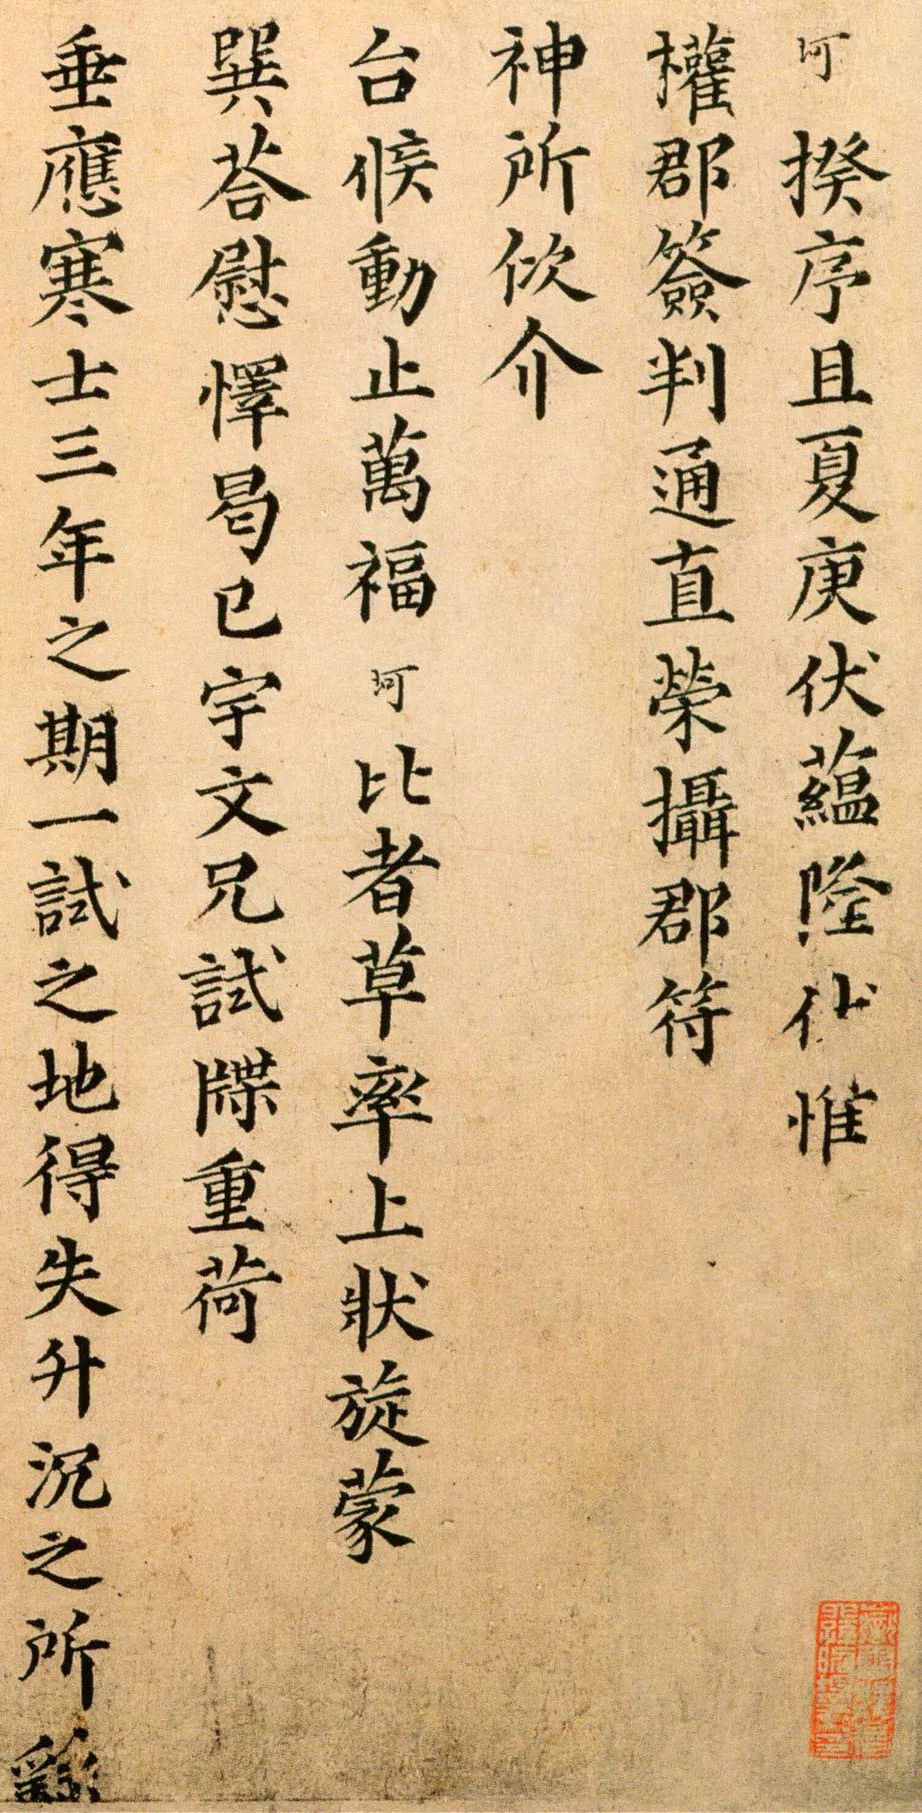 珂 揆序且夏庚伏蘊隆伏惟
權郡簽判通直榮攝郡符
神所佽介
台候動止萬福 珂 比者草率上狀旋蒙
巽荅慰懌曷已宇文兄試牒重荷
垂應寒士三年之期一試之地得失升沉之所